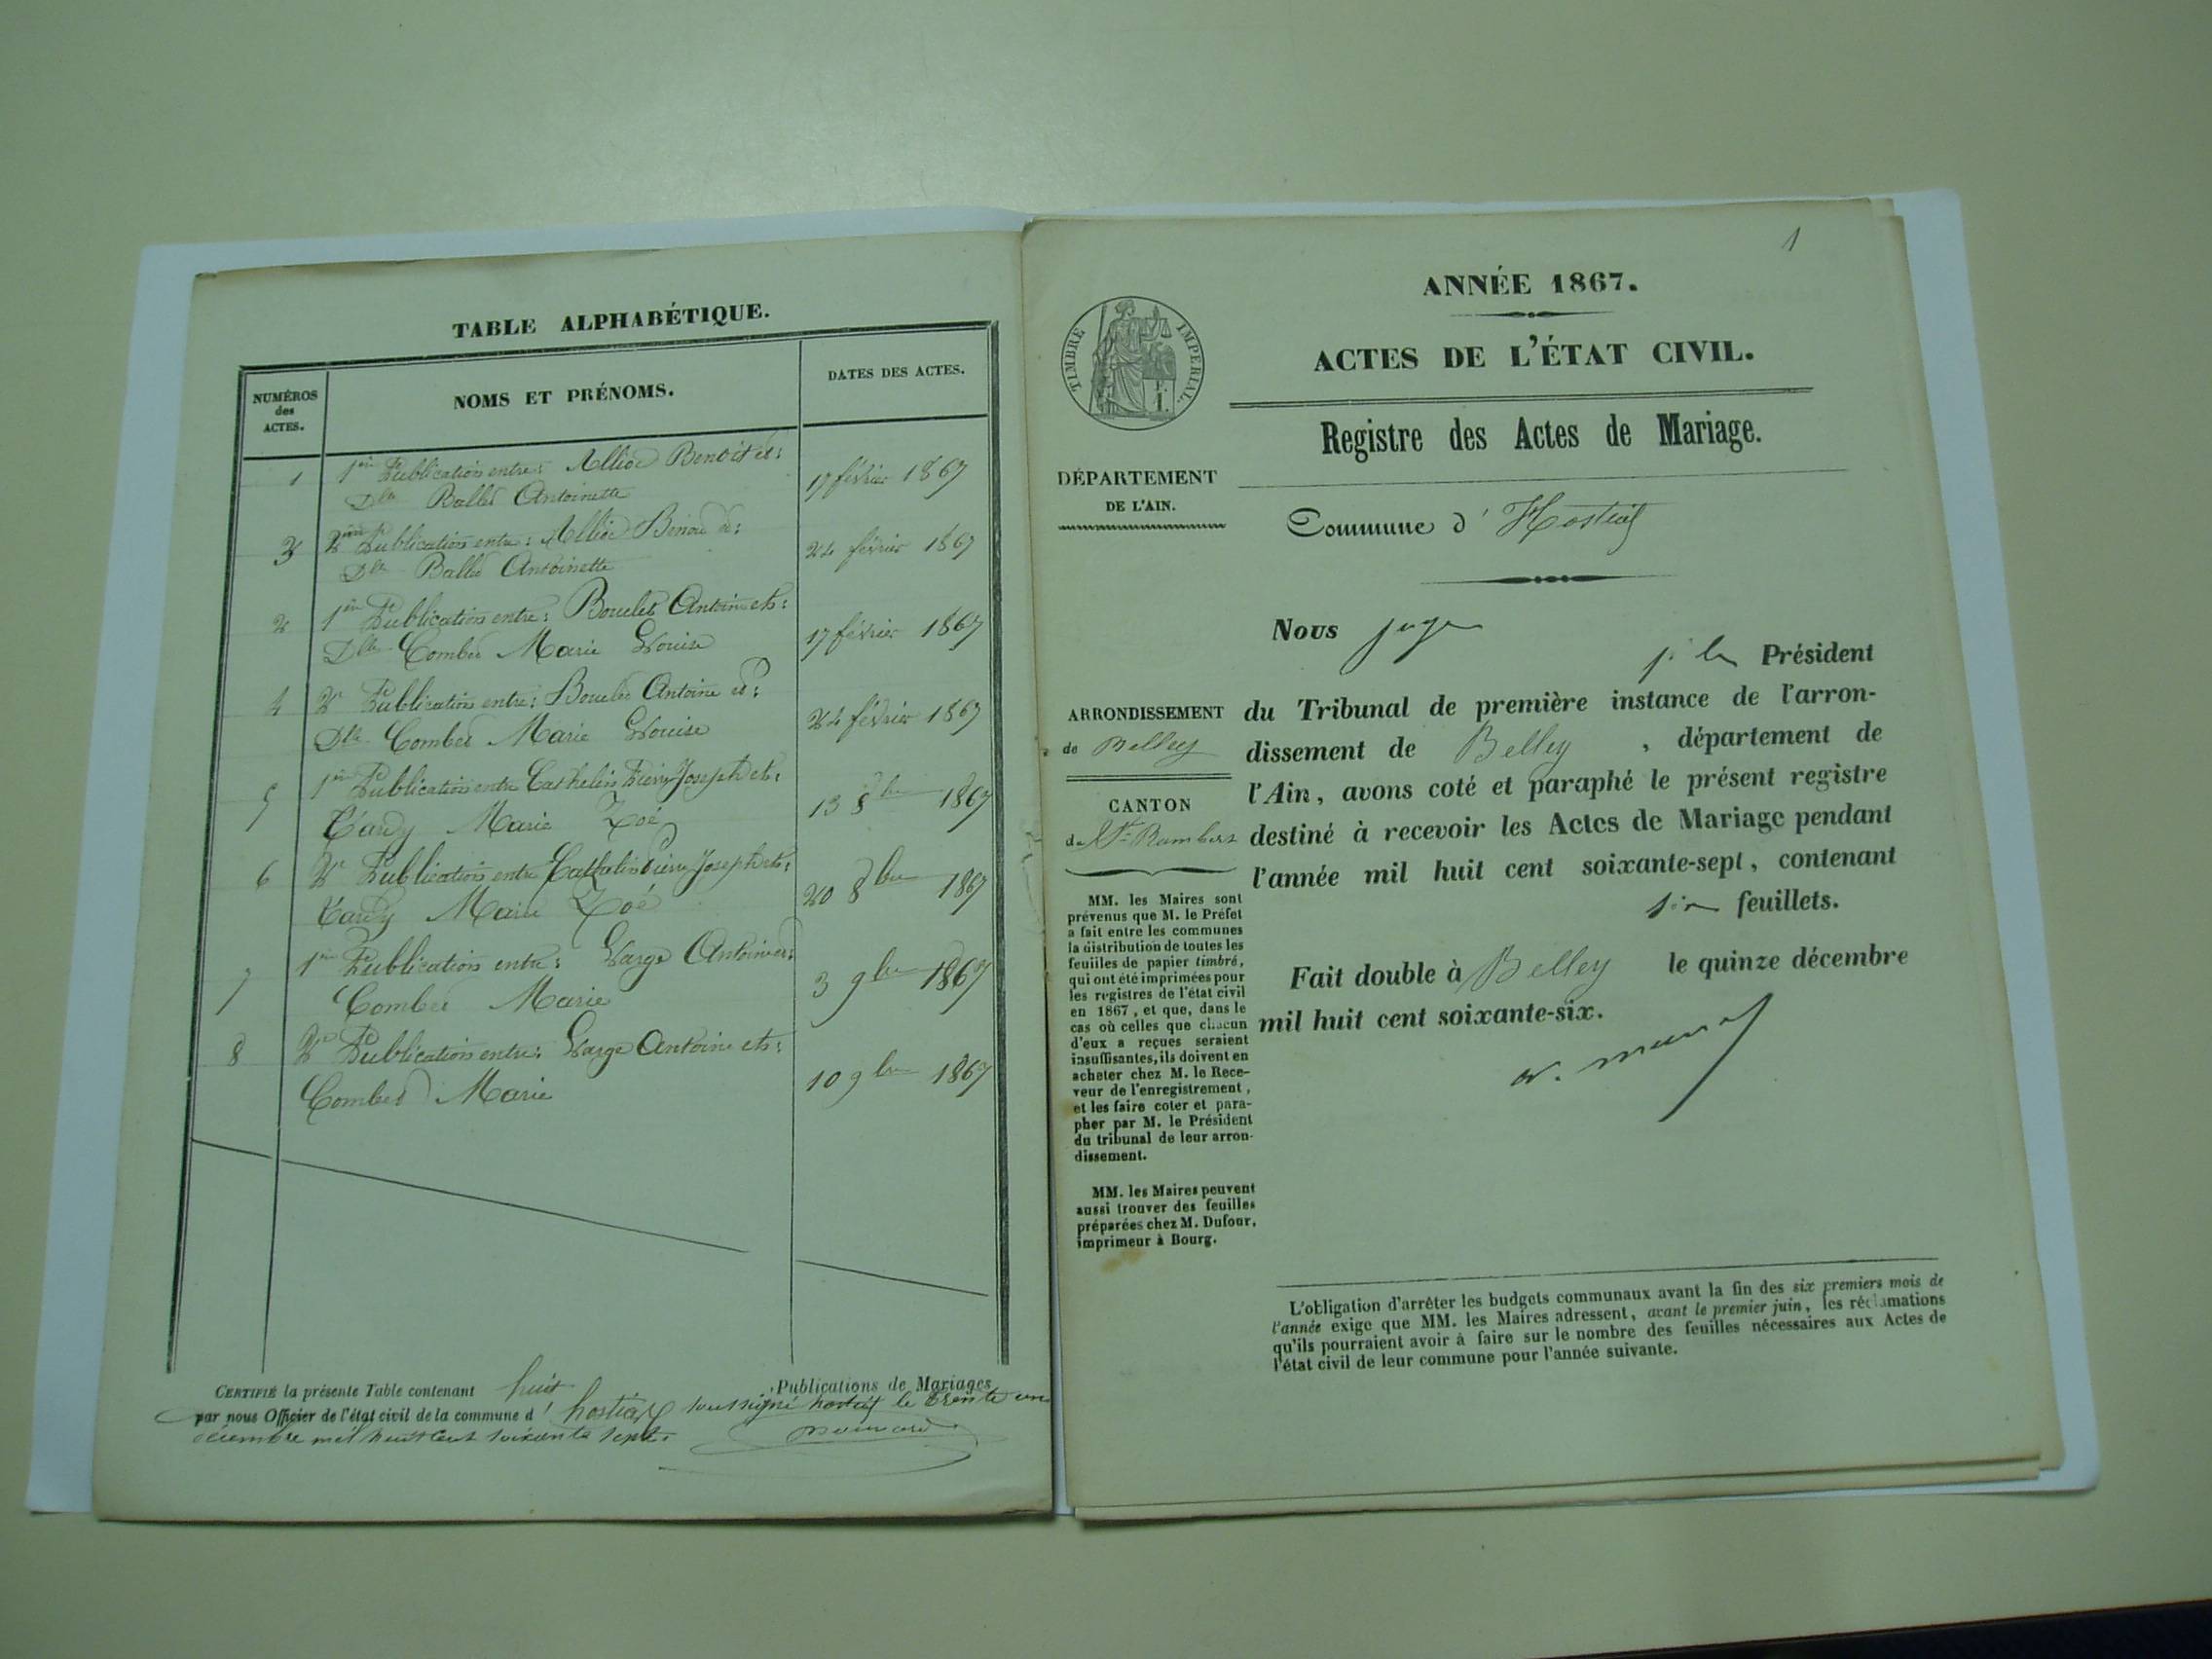 TABLE ALPHABÉTIQUE.
NUMÉROS
des
ACTES.
NOMS ET PRÉNOMS.
DATES DES ACTES.
1 1ère Publication entre: Alliod Benoit et:
Dlle Ballet Antoinette
17 février 1867
3 2ème Publication entre: Alliod Benoit et:
Dlle Ballet Antoinette
24 février 1867
2 1ère Publication entre: Boulet Antoine et:
Dlle Combet Marie Louise
17 février 1867
4 2e Publication entre: Antoine et:
Dlle Combet Marie Louise
24 février 1867
5 1ère Publication entre Cathelin Pierre Joseph et:
Tardy Marie Zoé
13 8bre 1867
6 2e Publication entre Cathelin Pierre Joseph et:
Tardy Marie Zoé
20 8bre 1867
7 1ère Publication entre: Large Antoine et:
Combet Marie
3 9bre 1867
8 2e Publication entre: Large Antoine et:
Combet Marie
10 9bre 1867
CERTIFIÉ la présente Table contenant huit Publications de Mariages
par nous Officier de l'état civil de la commune d' hostiaz soussigné hostiaz le trente un
décembre mil huit cent soixante sept.
1
ANNÉE 1867.
ACTES DE L'ÉTAT CIVIL.
TIMBRE IMPERIAL.
Registre des Actes de Mariage.
DÉPARTEMENT
DE L'AIN.
Commune d' Hostiaz
Nous juge
Président
du Tribunal de première instance de l'arron-
dissement de Belley, département de
l'Ain, avons coté et paraphé le présent registre
destiné à recevoir les Actes de Mariage pendant
l'année mil huit cent soixante-sept, contenant
six feuillets.
Fait double à Belley le quinze décembre
mil huit cent soixante-six.
ARRONDISSEMENT
de Belley
CANTON
de St Rambert
MM. les Maires sont
prévenus que M. le Préfet
a fait entre les communes
la distribution de toutes les
feuilles de papier timbré,
qui ont été imprimées pour
les registres de l'état civil
en 1867, et que, dans le
cas où celles que chacun
d'eux a reçues seraient
insuffisantes, ils doivent en
acheter chez M. le Rece-
veur de l'enregistrement,
et les faire coter et para-
pher par M. le Président
du tribunal de leur arron-
dissement.
MM. les Maires peuvent
aussi trouver des feuilles
préparées chez M. Dufour,
imprimeur à Bourg.
L'obligation d'arrêter les budgets communaux avant la fin des six premiers mois de
l'année exige que MM. les Maires adressent, avant le premier juin, les réclamations
qu'ils pourraient avoir à faire sur le nombre des feuilles nécessaires aux Actes de
l'état civil de leur commune pour l'année suivante.